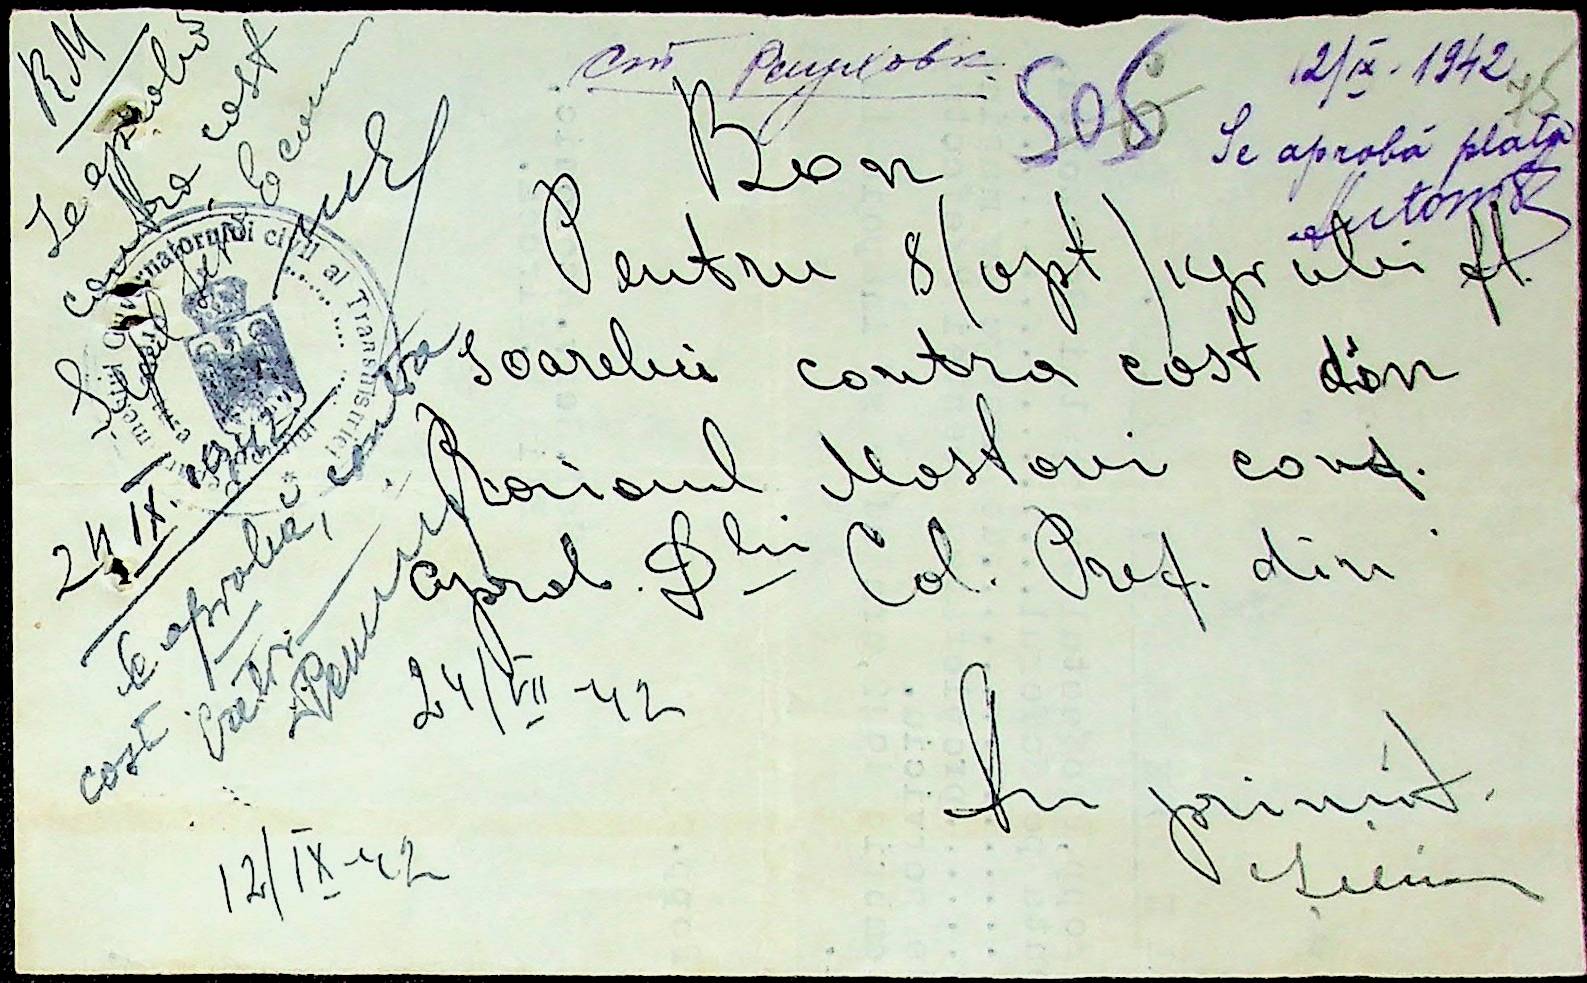 RM
Se aprobă
contra cost
12/IX-1942
Se aprobă plata
505
Bon
Pentru 8/opt) kgr ulei fl.
soarelui contra cost din
Raionul Mostovoi conf.
aprob. Dlui Col. Pref. din
24/VII-42
Am primit.
Guvernatorului civil al Transnistriei
24 IX. 1942
Se aprobă, contra
cost
12/IX-42